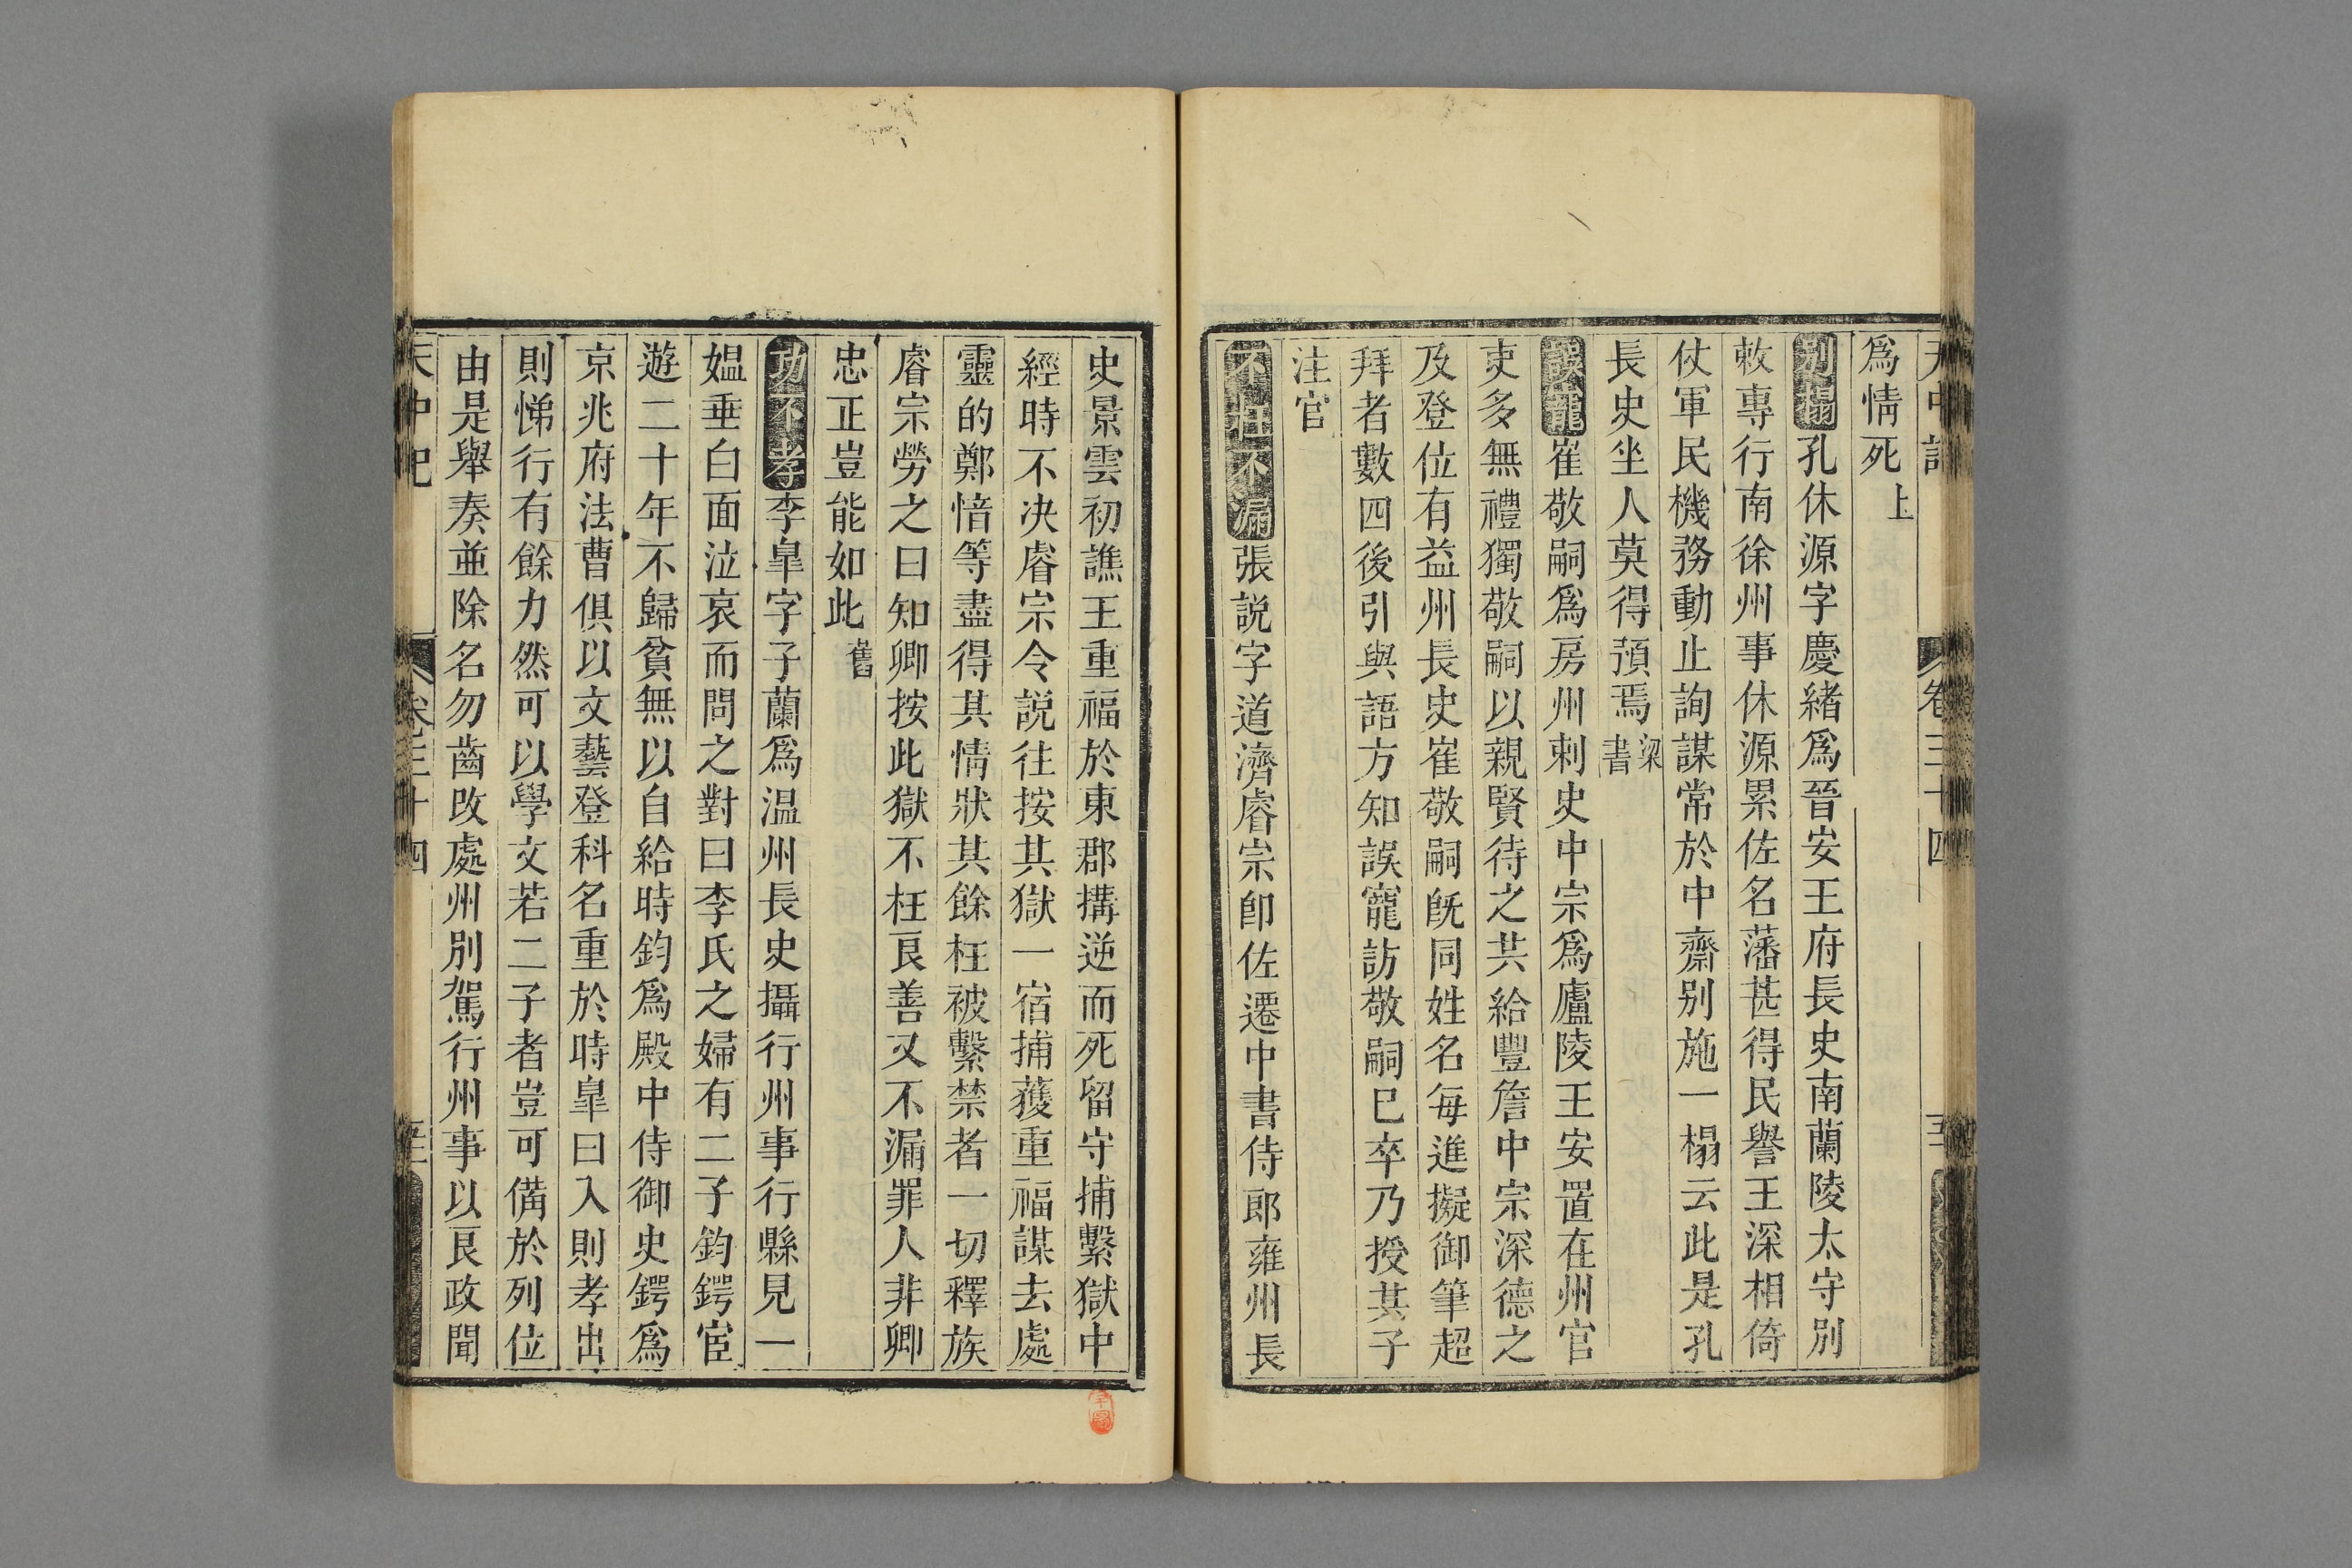 天中記 卷三十四
爲情死上
別榻孔休源字慶緒爲晉安王府長史南蘭陵太守別
敕專行南徐州事休源累佐名藩甚得民譽王深相倚
仗軍民機務動止詢謀常於中齋別施一榻云此是孔
長史坐人莫得預焉梁書
誤寵崔敬嗣爲房州刺史中宗爲廬陵王安置在州官
吏多無禮獨敬嗣以親賢待之共給豐詹中宗深德之
及登位有益州長史崔敬嗣旣同姓名每進擬御筆超
拜者數四後引與語方知誤寵訪敬嗣巳卒乃授其子
注官
不枉不漏張説字道濟睿宗卽佐遷中書侍郎雍州長
史景雲初譙王重福於東郡搆逆而死留守捕繫獄中
經時不决睿宗令説往按其獄一宿捕獲重福謀去處
靈的鄭愔等盡得其情狀其餘枉被繫禁者一切釋族
睿宗勞之曰知卿按此獄不枉艮善又不漏罪人非卿
忠正豈能如此舊
功不孝李臯字子蘭爲温州長史攝行州事行縣見一
媪垂白面泣哀而問之對曰李氏之婦有二子鈞鍔宦
遊二十年不歸貧無以自給時鈞爲殿中侍御史鍔爲
京兆府法曹俱以文藝登科名重於時臯曰入則孝出
則悌行有餘力然可以學文若二子者豈可備於列位
由是舉奏並除名勿齒改處州別駕行州事以艮政聞
天中記 卷三十四